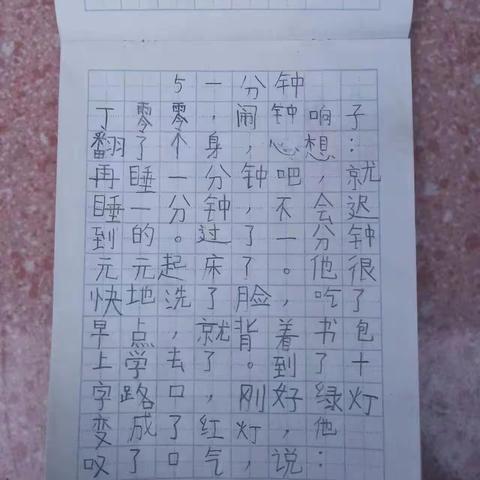 5 一分钟
丁零零，闹钟响子
翻了个身，心想：
再睡一分钟吧，就
睡一分钟，不会迟
到的。过了一分钟
元元起床了。他很
快地洗了脸，吃了
早点，就背着书包
上学去了。到了十
字路口，刚好绿灯
变成了红灯，他
叹了口气，说：